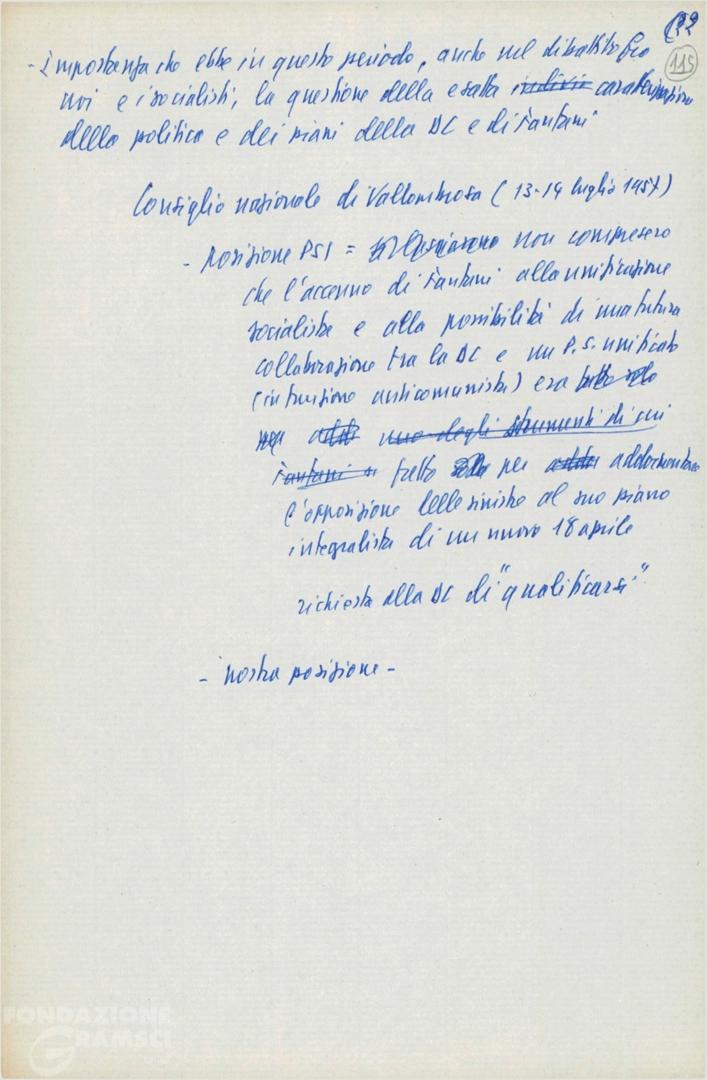 22
115
- Importanza che ebbe in questo periodo, anche nel dibattito fra
noi e i socialisti, la questione della esatta indivi caratterizzazione
della politica e dei piani della DC e di Fanfani
Consiglio nazionale di Vallombrosa (13-14 luglio 1957)
- Posizione PSI = non compresero
che l'accenno di Fanfani alla unificazione
socialista e alla possibilità di una futura
collaborazione tra la DC e un P.S. unificato
(in funzione anticomunista) era tutto solo
uno degli strumenti di cui
Fanfani si fatto solo per addormentare
l'opposizione delle sinistre al suo piano
integralista di un nuovo 18 aprile
richiesta alla DC di "qualificarsi"
- nostra posizione -
FONDAZIONE
GRAMSCI